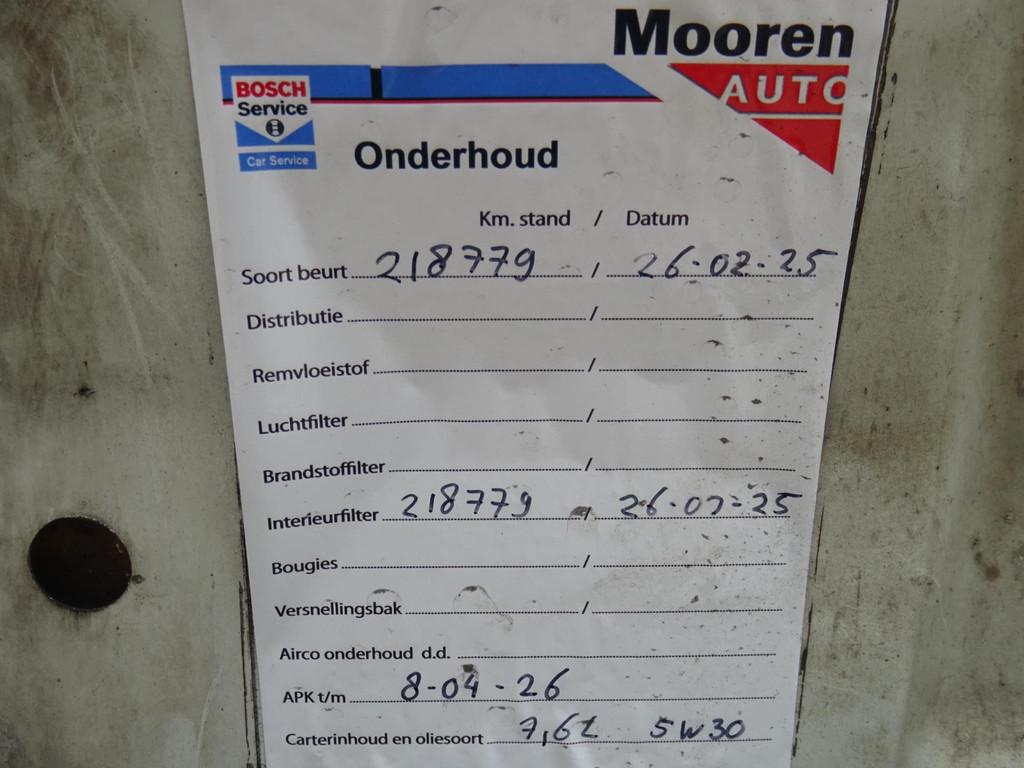 Mooren
AUTO
BOSCH
Service
Car Service
Onderhoud
Km. stand / Datum
Soort beurt 218779 / 26-02-25
Distributie /
Remvloeistof /
Luchtfilter /
Brandstoffilter /
Interieurfilter 218779 / 26-02-25
Bougies /
Versnellingsbak /
Airco onderhoud d.d.
APK t/m 8-04-26
Carterinhoud en oliesoort 7,6L 5W30